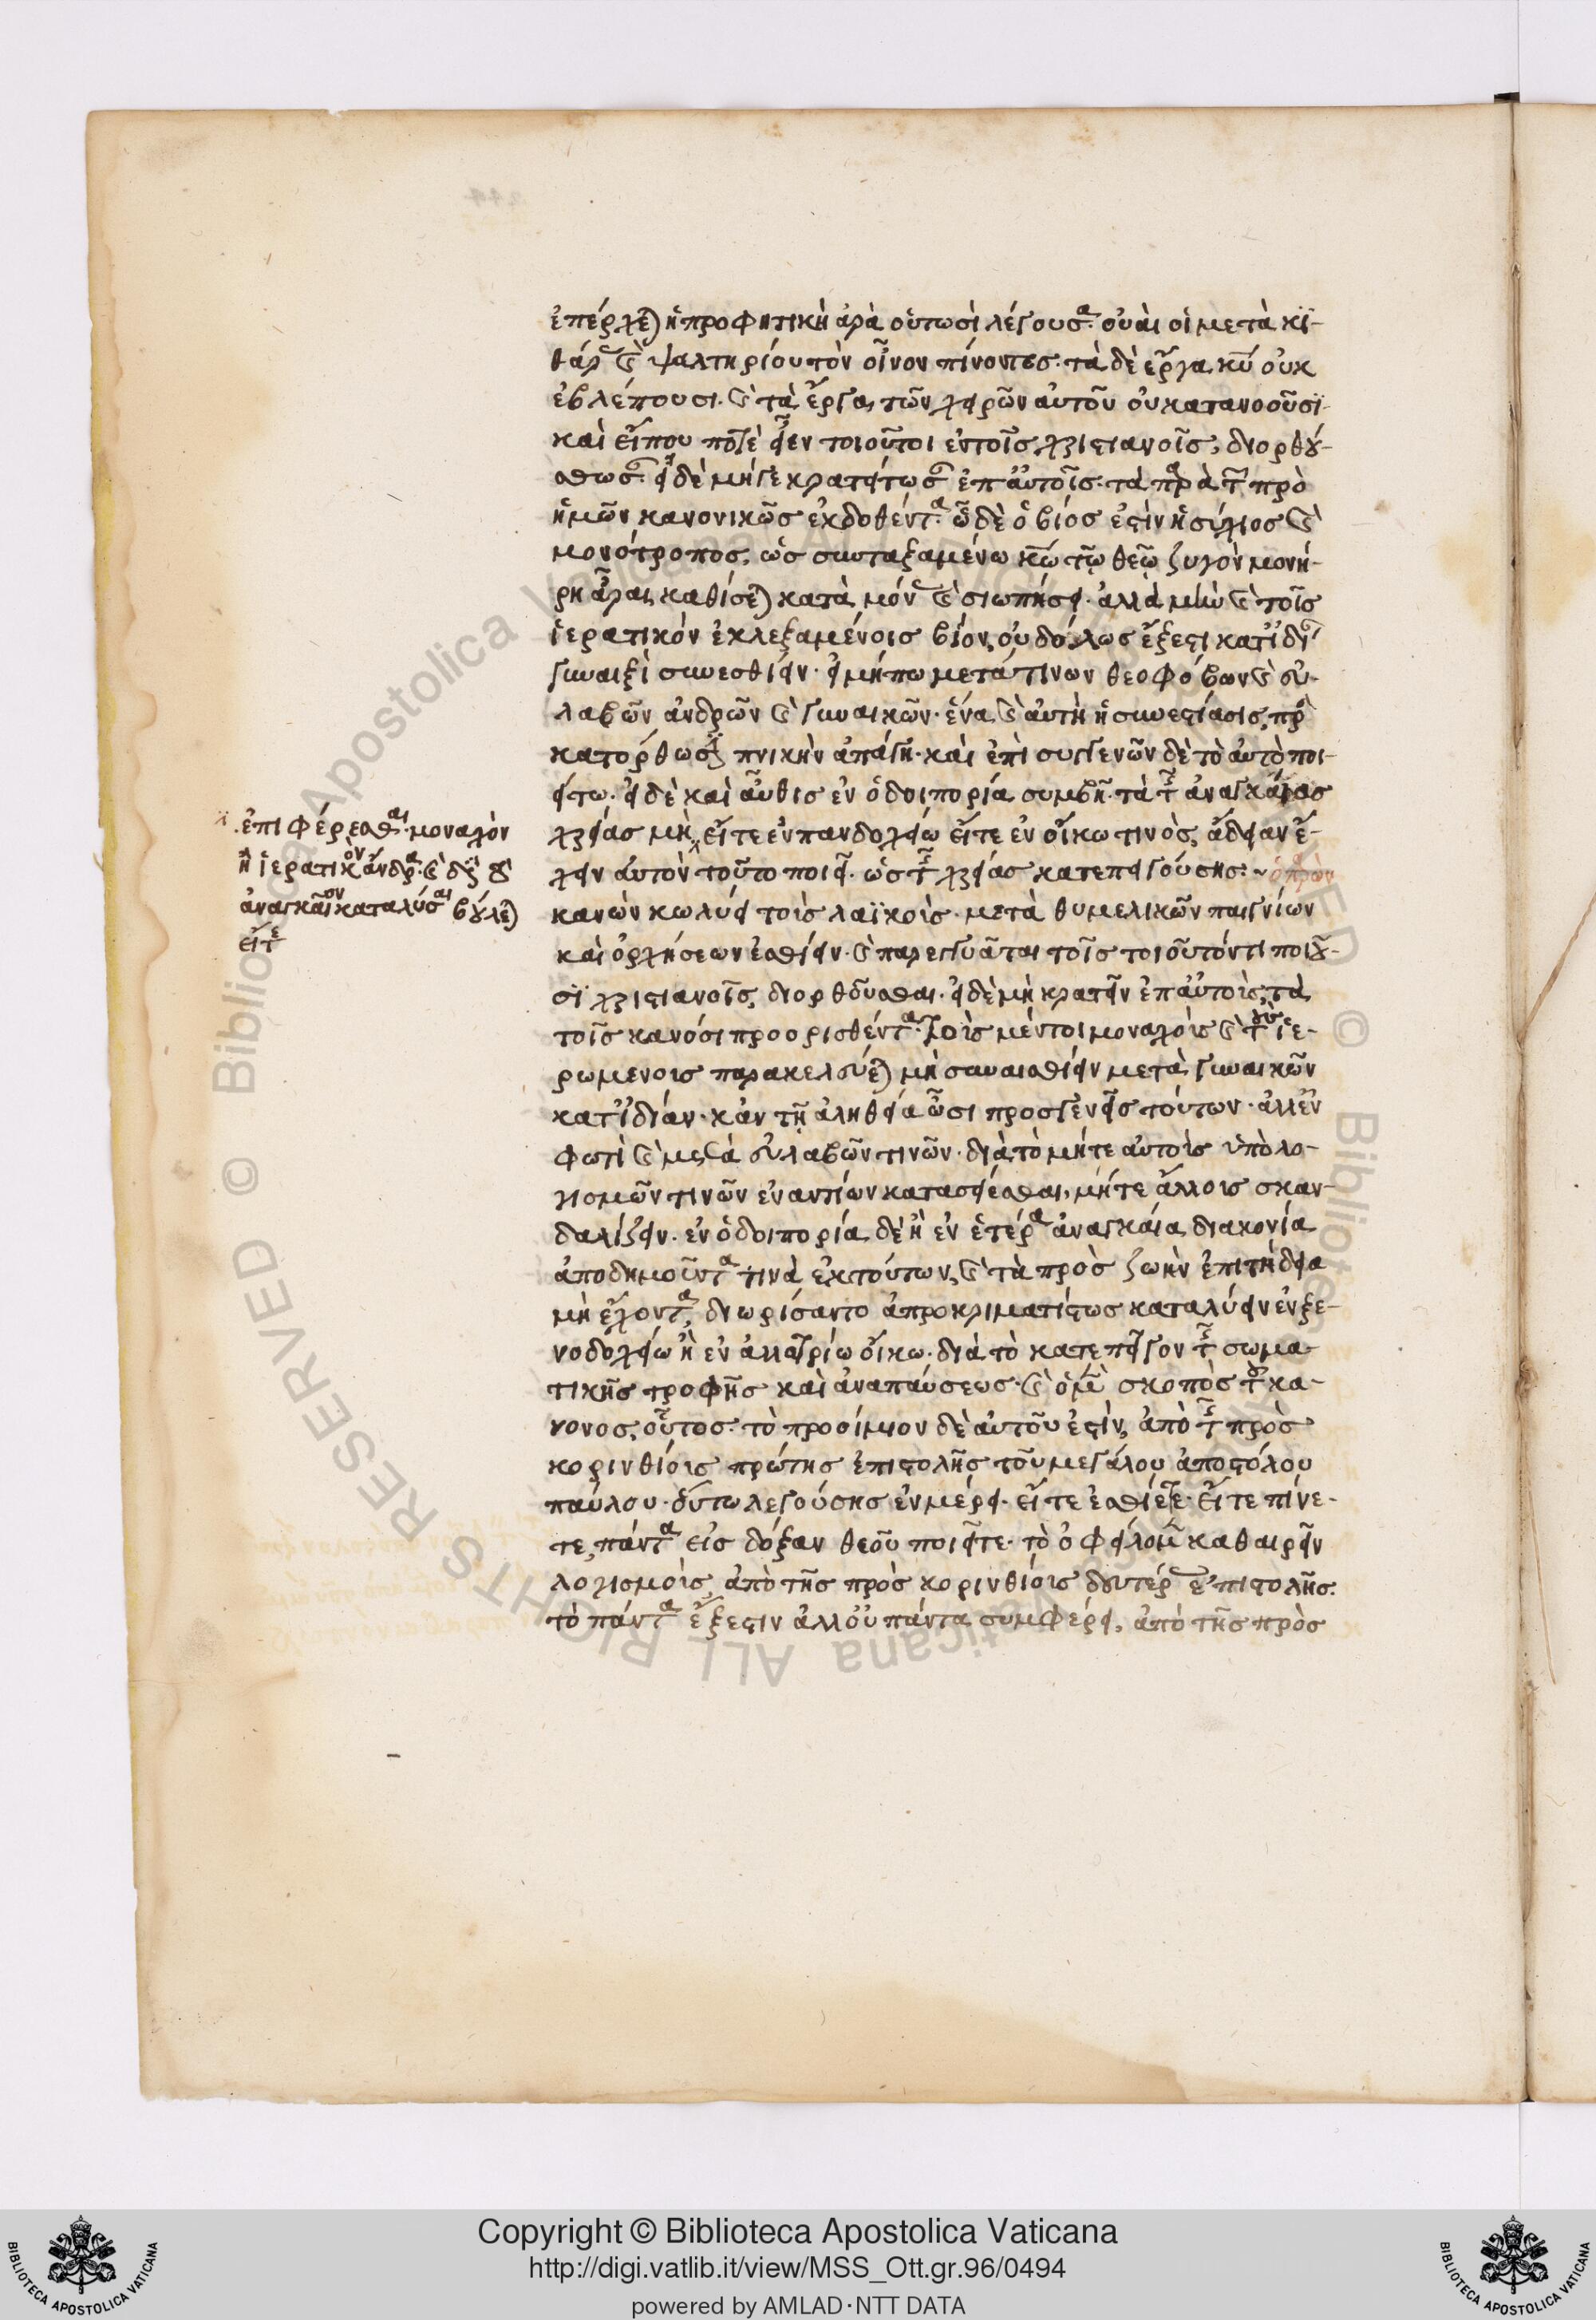 ἐπέρχεται ἡ προφητικὴ ἀρὰ οὑτωσὶ λέγουσα. οὐαὶ οἱ μετὰ κι-
θάρας καὶ ψαλτηρίου τὸν οἶνον πίνοντες. τὰ δὲ ἔργα κυ οὐκ
ἐβλέπουσι. καὶ τὰ ἔργα τῶν χειρῶν αὐτοῦ οὐ κατανοοῦσι.
καὶ εἴπου ποτὲ εἶεν τοιοῦτοι ἐν τοῖς χριστιανοῖς, διορθού-
σθωσαν. εἰ δὲ μή γε κρατείτωσαν ἐπ' αὐτοῖς. τὰ παρὰ τῶν πρὸ
ἡμῶν κανονικῶς ἐκδοθέντα. ὧ δὲ ὁ βίος ἐστὶν ἡσύχιος καὶ
μονότροπος, ὡς συνταξαμένω κω τῷ θεῷ ζυγὸν μονή-
ρη ἆραι, καθίσεται κατὰ μόνας καὶ σιωπήσει. ἀλλὰ μὴν καὶ τοῖς
ἱερατικὸν ἐκλεξαμένοις βίον, οὐδόλως ἔξεστι κατ' ἰδίαν
γυναιξὶ συνεσθίειν. εἰ μήπω μετά τινων θεοφόβων καὶ εὐ-
λαβῶν ἀνδρῶν καὶ γυναικῶν. ἵνα καὶ αὐτὴ ἡ συνεστίασις, πρὸς
κατόρθωσιν πνικὴν ἀπάγη. καὶ ἐπὶ συγγενῶν δὲ τὸ αὐτὸ ποι-
είτω. εἰ δὲ καὶ αὖθις ἐν ὁδοιπορία συμβῆ. τὰ τῆς ἀναγκαίας
χρείας μὴ εἴτε ἐν πανδοχείω εἴτε ἐν οἴκω τινὸς, ἄδειαν ἔ-
χειν αὐτὸν τοῦτο ποιεῖν. ὡς τῆς χρείας κατεπειγούσης: ~ ὁ παρὼν
κανὼν κωλύει τοῖς λαϊκοῖς. μετὰ θυμελικῶν παιγνίων
καὶ ὀρχήσεων ἐσθίειν. καὶ παρεγγυᾶται τοῖς τοιοῦτόν τι ποιοῦ-
σι χριστιανοῖς, διορθοῦσθαι. εἰ δὲ μὴ κρατεῖν ἐπ' αὐτοῖς, τὰ
τοῖς κανόσι προορισθέντα. τοῖς μέντοι μοναχοῖς καὶ τοῖς ἱε-
ρωμένοις παρακελεύεται μὴ συναισθίειν μετὰ γυναικῶν
κατ' ἰδίαν. κἂν τῇ ἀληθεία ὦσι προσγενεῖς τούτων. ἀλλ' ἐν
φωτὶ καὶ μετὰ εὐλαβῶν τινῶν. διὰ τὸ μήτε αὐτοῖς ὑπὸ λο-
γισμῶν τινῶν ἐναντίων κατασείεσθαι, μήτε ἄλλοις σκαν-
δαλίζειν. ἐν ὁδοιπορία δὲ ἢ ἐν ἑτέρα ἀναγκαία διακονία
ἀποδημοῦντα τινὰ ἐκ τούτων, καὶ τὰ πρὸς ζωὴν ἐπιτήδεια
μὴ ἔχοντα, διωρίσαντο ἀπροκριματίστως καταλύειν ἐν ξε-
νοδοχείω ἢ ἐν ἀλλοτρίω οἴκω. διὰ τὸ κατεπεῖγον τῆς σωμα-
τικῆς τροφῆς καὶ ἀναπαύσεως. καὶ ὁ μὲν σκοπὸς τοῦ κα-
νονος, οὗτος. τὸ προοίμιον δὲ αὐτοῦ ἐστὶν, ἀπὸ τῆς πρὸς
κορινθίοις πρώτης ἐπιστολῆς τοῦ μεγάλου ἀποστόλου
παύλου. οὕτω λεγούσης ἐν μέρει. εἴτε ἐσθίετε. εἴτε πίνε-
τε, πάντα εἰς δόξαν θεοῦ ποιεῖτε. τὸ ὀφείλομεν καθαιρεῖν
λογισμοὶς, ἀπὸ τῆς πρὸς κορινθίοις δευτέρας ἐπιστολῆς.
τὸ πάντα ἔξεστιν ἀλλ' οὐ πάντα συμφέρει, ἀπὸ τῆς πρὸς
ἐπιφέρεσθαι. μοναχὸν
ἢ ἱερατικὸν ἄνδρα. καὶ διὰ τὸ
ἀναγκαῖον καταλύσαι βούλεται
εἴτε
Copyright © Biblioteca Apostolica Vaticana
http://digi.vatlib.it/view/MSS_Ott.gr.96/0494
powered by AMLAD·NTT DATA
BIBLIOTECA APOSTOLICA VATICANA
BIBLIOTECA APOSTOLICA VATICANA